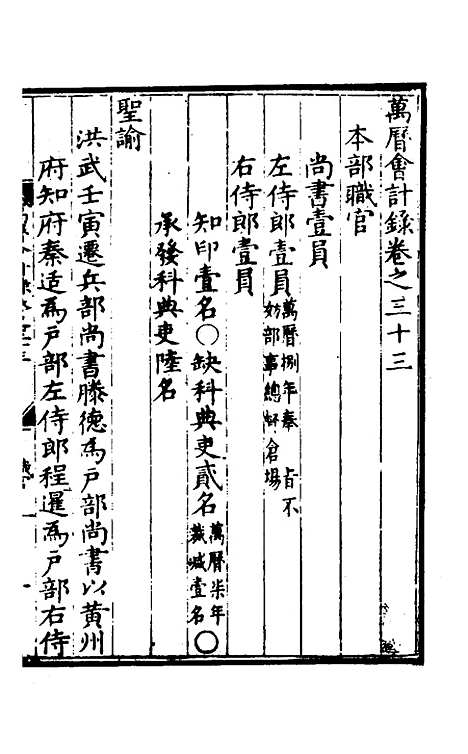 萬曆會計錄卷之三十三
本部職官
尚書壹員
左侍郎壹員萬曆捌年奏旨不
妨部事總督倉場
右侍郎壹員
知印壹名○缺科典吏貳名萬曆柒年
裁減壹名○
承發科典吏陸名
聖諭
洪武壬寅遷兵部尚書滕德為戸部尚書以黃州
府知府秦适為戸部左侍郎程暹為戸部右侍